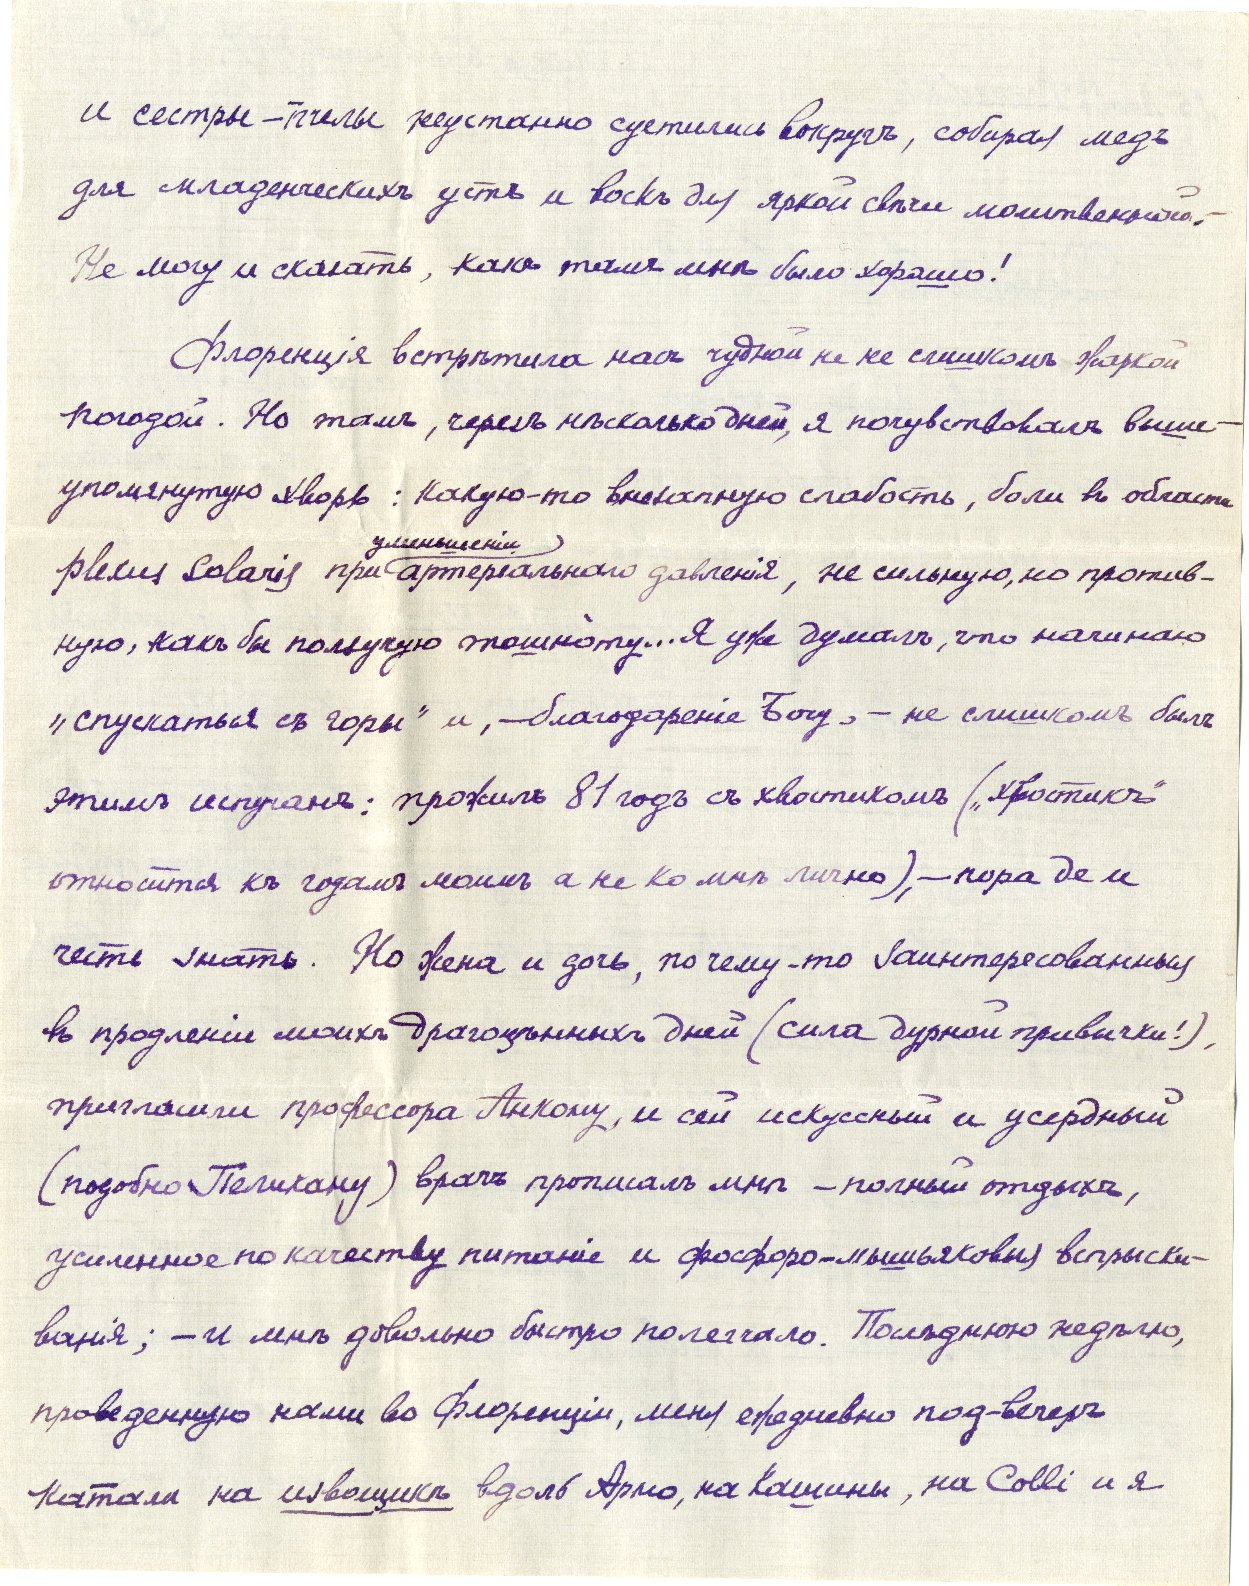 и сестры-пчелы неустанно суетились вокругъ, собирая медъ
для младенческихъ устъ и воскъ для яркой свѣчи молитвенной.-
Не могу и сказать, какъ тамъ мнѣ было хорошо!
Флоренція встрѣтила насъ чудной не не слишкомъ жаркой
погодой. Но тамъ, черезъ нѣсколько дней, я почувствовалъ выше-
упомянутую хворь: какую-то внезапную слабость, боли въ области
plexus solaris при уменьшеніи артеріальнаго давленія, не сильную, но против-
ную, какъ бы ползучую тошноту... Я уже думалъ, что начинаю
„спускаться съ горы" и, — благодареніе Богу, — не слишкомъ былъ
этимъ испуганъ: прожилъ 81 годъ съ хвостикомъ („хвостикъ"
относится къ годамъ моимъ а не ко мнѣ лично), — пора де и
честь знать. Но жена и дочь, почему-то заинтересованныя
въ продленіи моихъ драгоцѣнныхъ дней (сила дурной привычки!),
пригласили профессора Анкону, и сей искуссный и усердный
(подобно Пеликану) врачъ прописалъ мнѣ — полный отдыхъ,
усиленное по качеству питаніе и фосфоро-мышьяковыя вспрыски-
ванія; — и мнѣ довольно быстро полегчало. Послѣднюю недѣлю,
проведенную нами во Флоренціи, меня ежедневно под-вечеръ
катали на извощикѣ вдоль Арно, на Кашины, на Colli и я